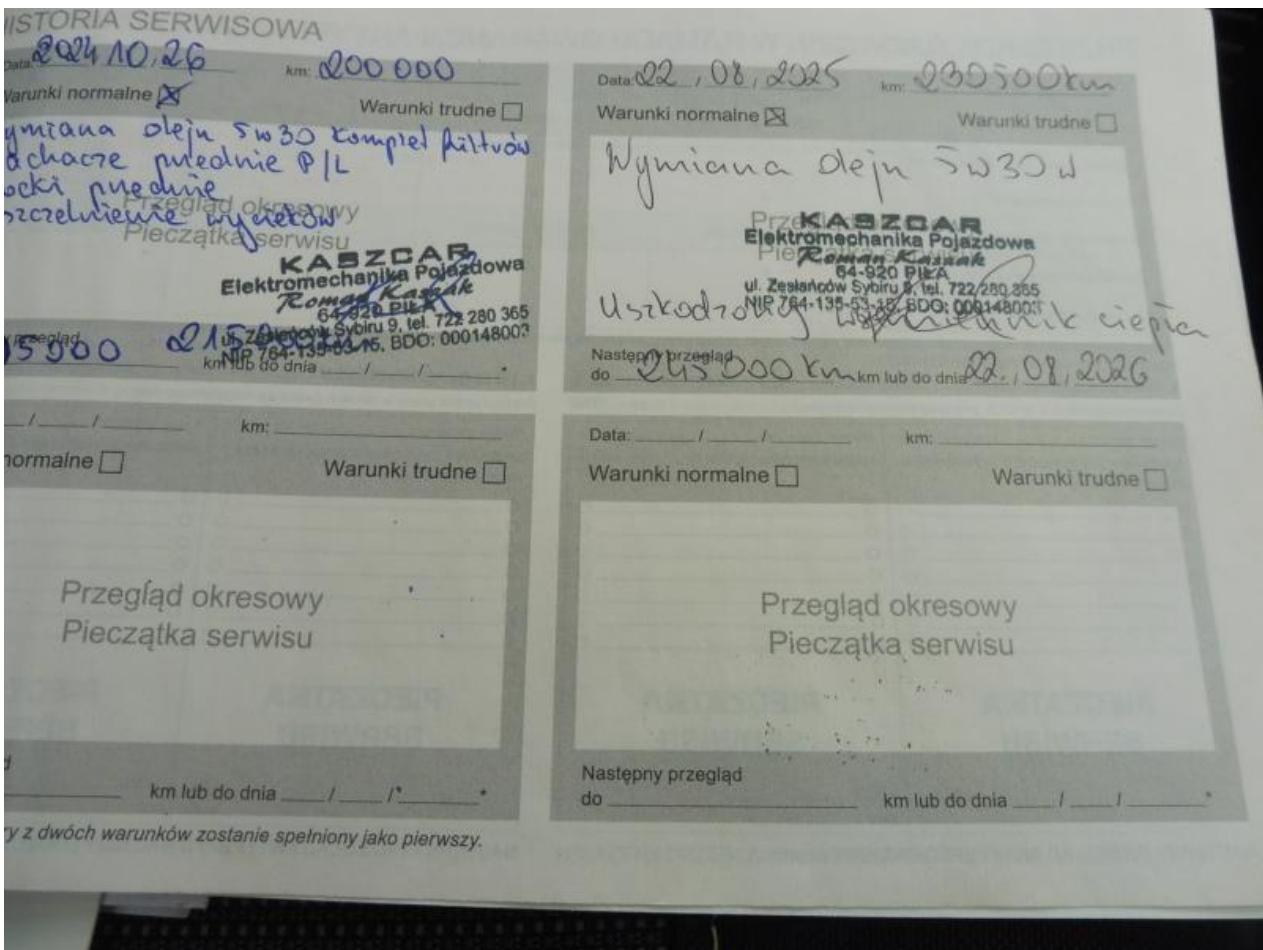 HISTORIA SERWISOWA
Data: 2024 10.26 km: 200 000
Warunki normalne Warunki trudne
ymiana oleju 5w30 komplet filtrów
achacze przednie P/L
ocki przednie
szczelnienie wycieków
Przegląd okresowy
Pieczątka serwisu
KASZCAR
Elektromechanika Pojazdowa
Roman Kaszak
64-920 PIŁA
ul. Zesłańców Sybiru 9, tel. 722 280 365
NIP 764-135-53-15, BDO: 000148003
przegląd
15 000 215 000
km lub do dnia / / *
Data: 22, 08, 2025 km: 230500km
Warunki normalne Warunki trudne
Wymiana oleju 5w30 w
Przegląd okresowy
Pieczątka serwisu
KASZCAR
Elektromechanika Pojazdowa
Roman Kaszak
64-920 PIŁA
ul. Zesłańców Sybiru 9, tel. 722/280 365
NIP 764-135-53-15, BDO: 000148003
Uszkodzony ciepła
Następny przegląd
do 245 000 km km lub do dnia 22., 08, 2026
/ / km:
normalne Warunki trudne
Przegląd okresowy
Pieczątka serwisu
km lub do dnia / / *
Data: / / km:
Warunki normalne Warunki trudne
Przegląd okresowy
Pieczątka serwisu
Następny przegląd
do km lub do dnia / / *
y z dwóch warunków zostanie spełniony jako pierwszy.